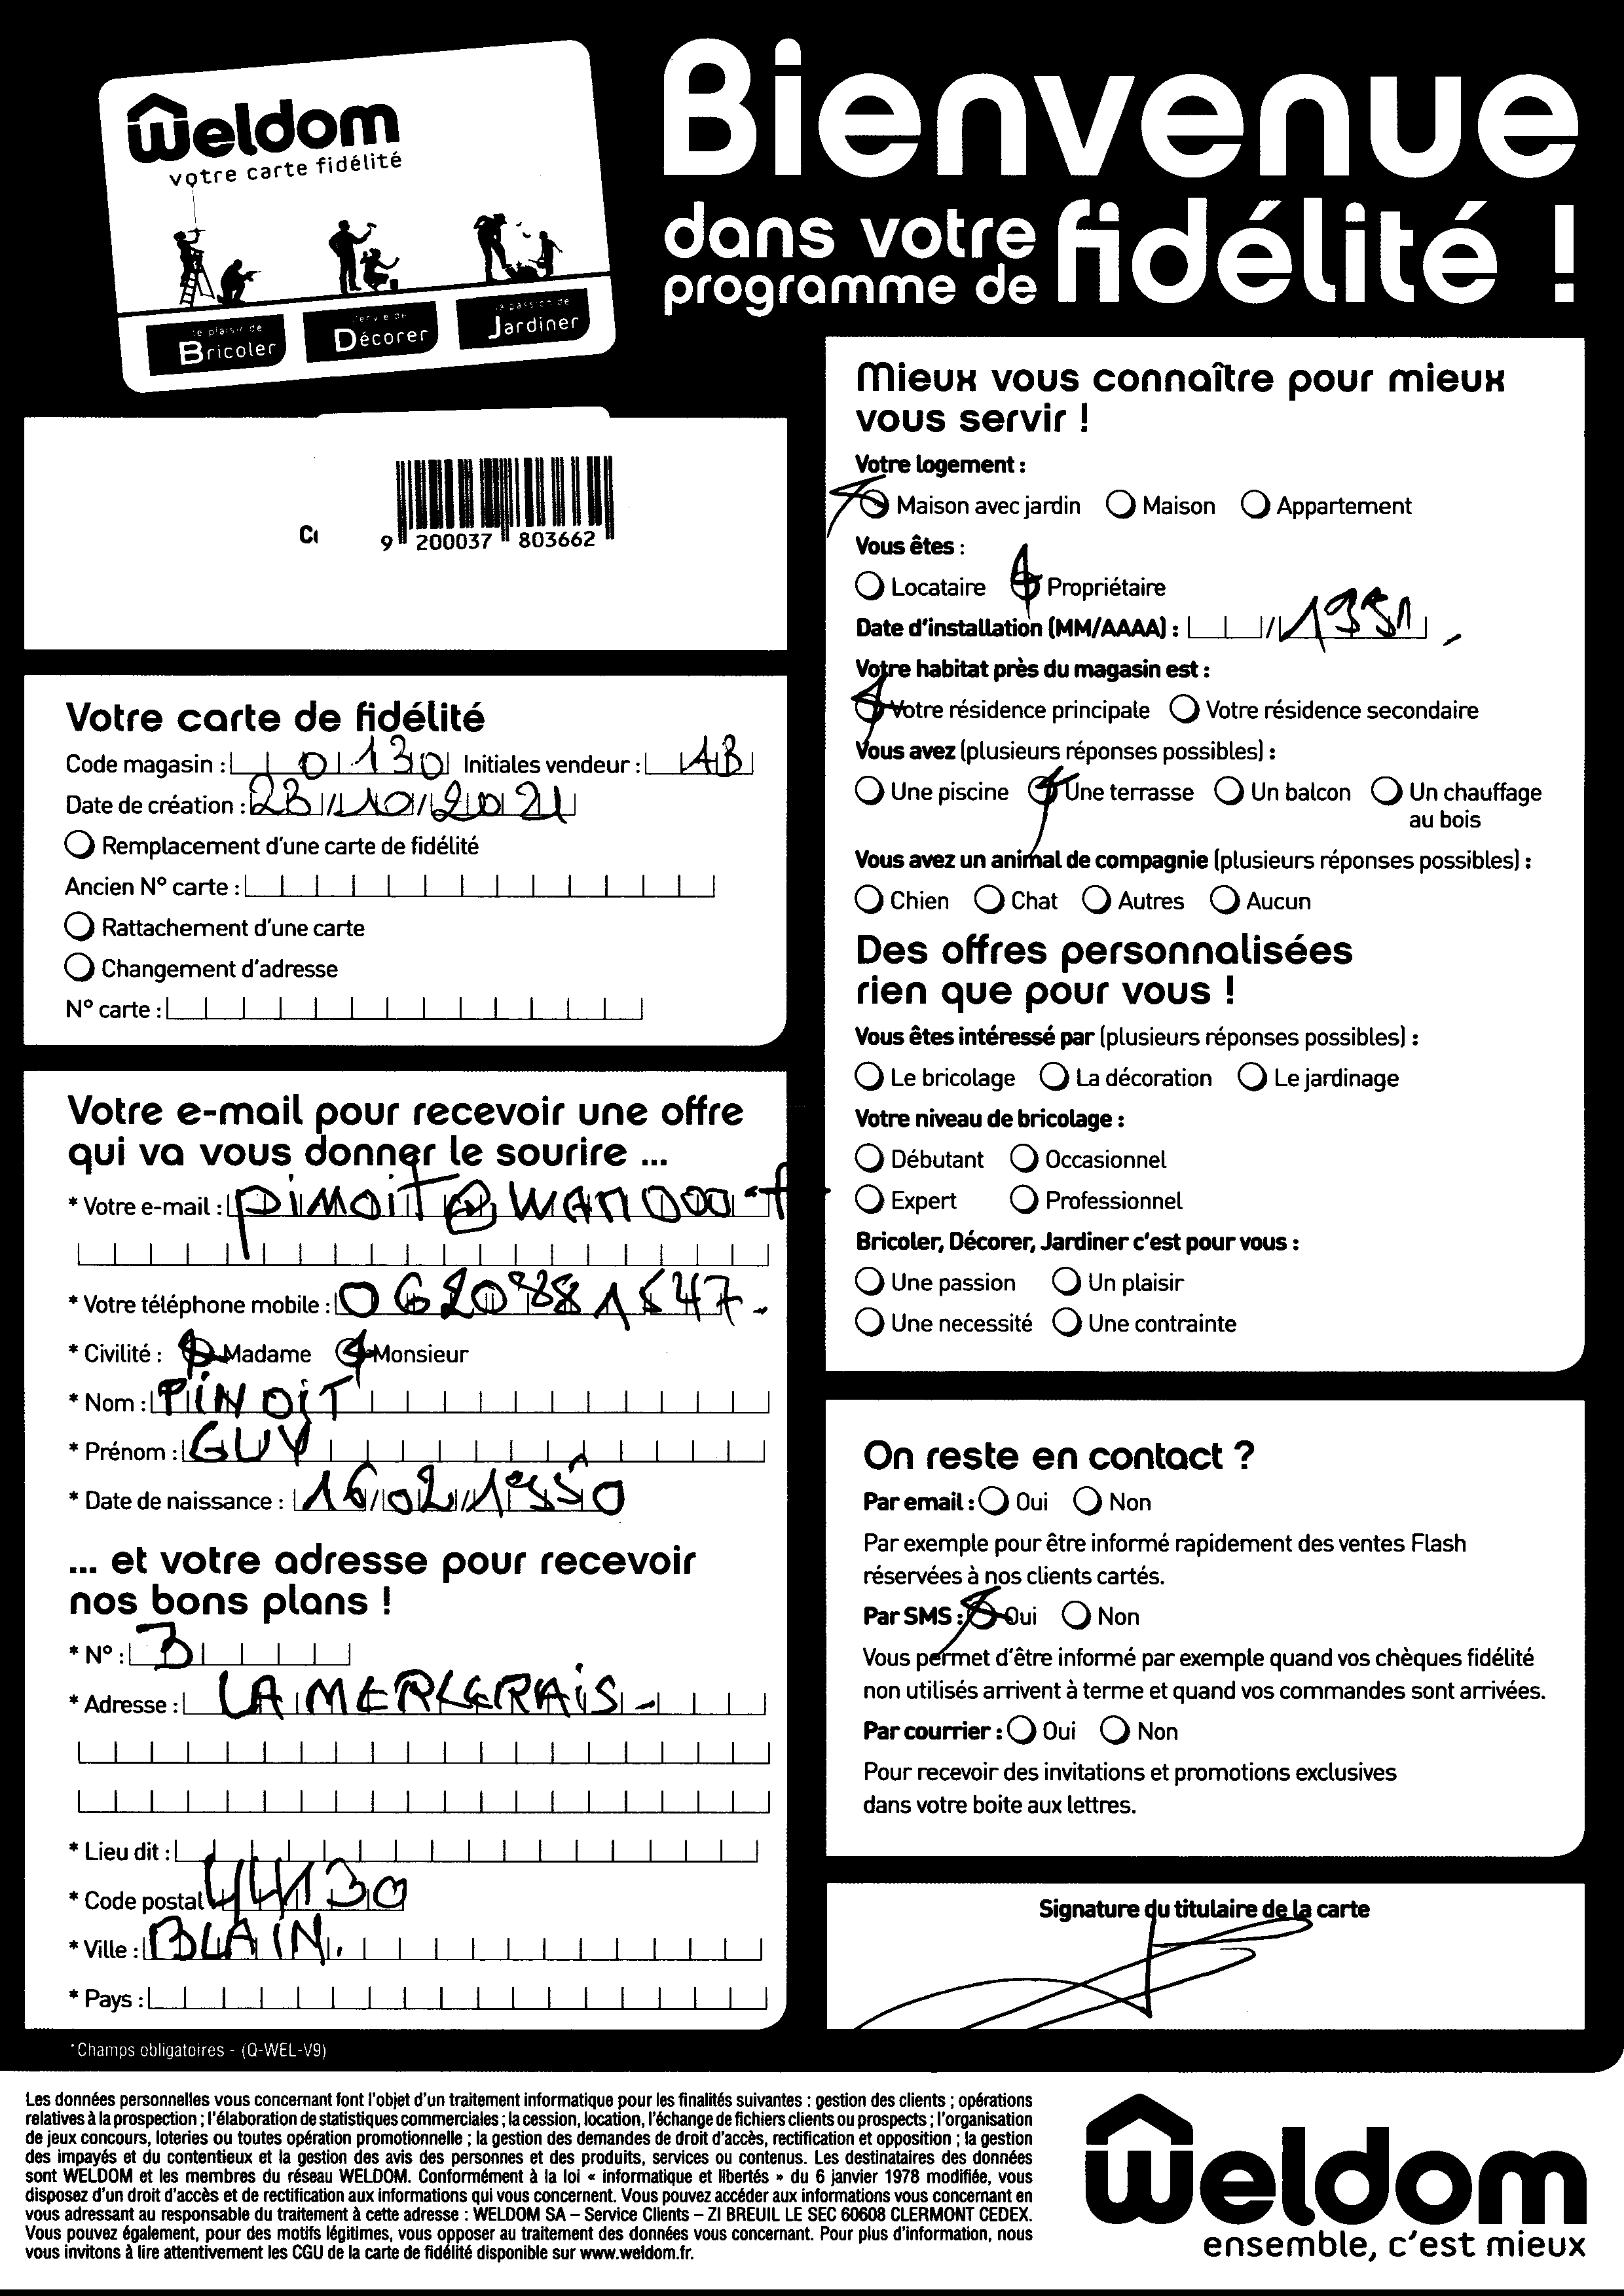 Weldom
votre carte fidélité
le plaisir de
Bricoler
l'envie de
Décorer
la passion de
Jardiner
Bienvenue
dans votre
programme de fidélité !
9 200037 803662
Votre carte de fidélité
Code magasin : 0130 Initiales vendeur : AB
Date de création : 23/10/2021
Remplacement d'une carte de fidélité
Ancien N° carte :
Rattachement d'une carte
Changement d'adresse
N° carte :
Votre e-mail pour recevoir une offre
qui va vous donner le sourire ...
* Votre e-mail :
* Votre téléphone mobile :
* Civilité : Madame Monsieur
* Nom : PINOIT
* Prénom : GUY
* Date de naissance : 16/02/1950
... et votre adresse pour recevoir
nos bons plans !
* N° : 3
* Adresse : LA
* Lieu dit :
* Code postal 44130
* Ville : BLAIN.
* Pays :
*Champs obligatoires - (Q-WEL-V9)
Mieux vous connaître pour mieux
vous servir !
Votre logement :
Maison avec jardin Maison Appartement
Vous êtes :
Locataire Propriétaire
Date d'installation (MM/AAAA) : /
Votre habitat près du magasin est :
Votre résidence principale Votre résidence secondaire
Vous avez (plusieurs réponses possibles) :
Une piscine Une terrasse Un balcon Un chauffage
au bois
Vous avez un animal de compagnie (plusieurs réponses possibles) :
Chien Chat Autres Aucun
Des offres personnalisées
rien que pour vous !
Vous êtes intéressé par (plusieurs réponses possibles) :
Le bricolage La décoration Le jardinage
Votre niveau de bricolage :
Débutant Occasionnel
Expert Professionnel
Bricoler, Décorer, Jardiner c'est pour vous :
Une passion Un plaisir
Une necessité Une contrainte
On reste en contact ?
Par email : Oui Non
Par exemple pour être informé rapidement des ventes Flash
réservées à nos clients cartés.
Par SMS : Oui Non
Vous permet d'être informé par exemple quand vos chèques fidélité
non utilisés arrivent à terme et quand vos commandes sont arrivées.
Par courrier : Oui Non
Pour recevoir des invitations et promotions exclusives
dans votre boite aux lettres.
Signature du titulaire de la carte
Les données personnelles vous concernant font l'objet d'un traitement informatique pour les finalités suivantes : gestion des clients ; opérations
relatives à la prospection ; l'élaboration de statistiques commerciales ; la cession, location, l'échange de fichiers clients ou prospects ; l'organisation
de jeux concours, loteries ou toutes opération promotionnelle ; la gestion des demandes de droit d'accès, rectification et opposition ; la gestion
des impayés et du contentieux et la gestion des avis des personnes et des produits, services ou contenus. Les destinataires des données
sont WELDOM et les membres du réseau WELDOM. Conformément à la loi « informatique et libertés » du 6 janvier 1978 modifiée, vous
disposez d'un droit d'accès et de rectification aux informations qui vous concernent. Vous pouvez accéder aux informations vous concernant en
vous adressant au responsable du traitement à cette adresse : WELDOM SA – Service Clients – ZI BREUIL LE SEC 60608 CLERMONT CEDEX.
Vous pouvez également, pour des motifs légitimes, vous opposer au traitement des données vous concernant. Pour plus d'information, nous
vous invitons à lire attentivement les CGU de la carte de fidélité disponible sur www.weldom.fr.
Weldom
ensemble, c'est mieux